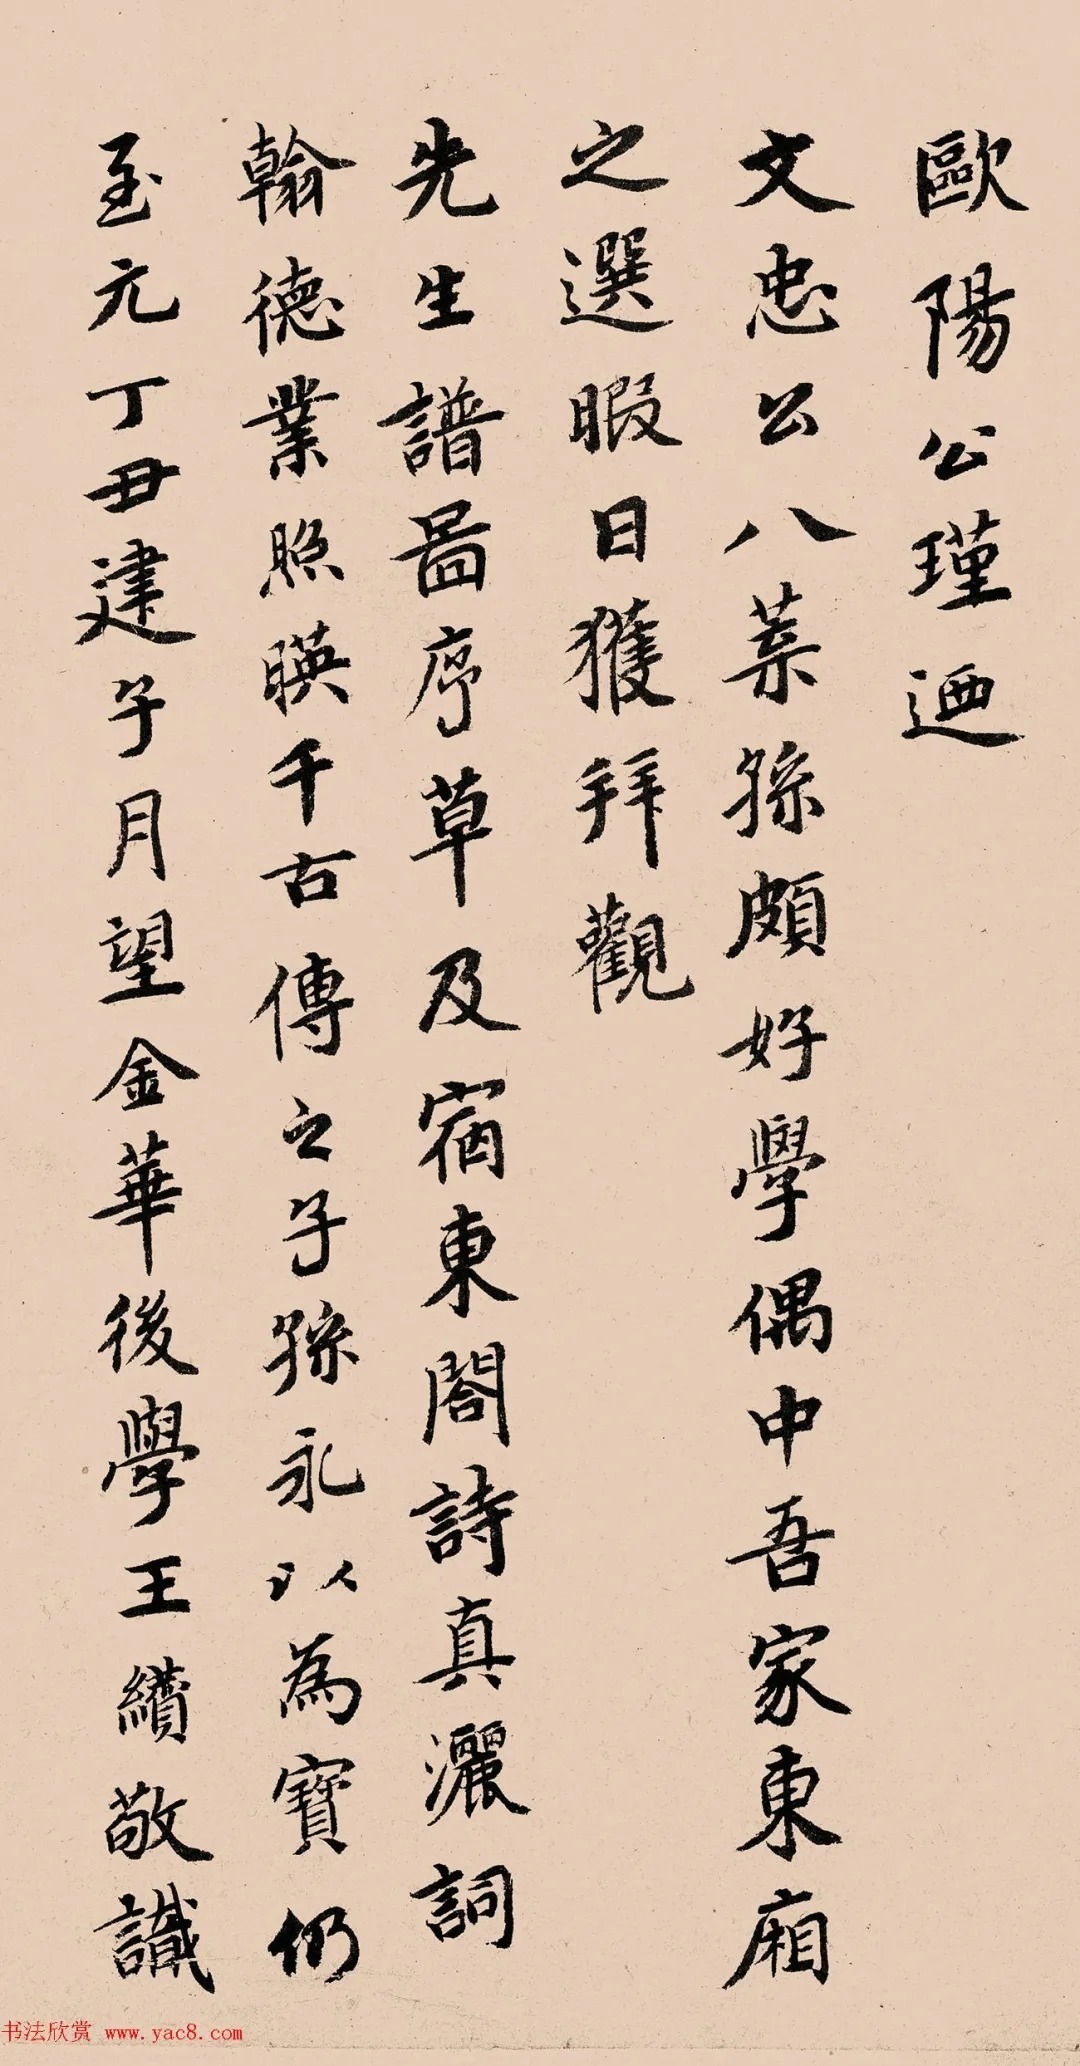 歐陽公瑾迺
文忠公八葉孫頗好學偶中吾家東廂
之選暇日獲拜觀
先生譜圖序草及宿東閣詩真灑詞
翰德業照暎千古傳之子孫永以為寶仍
至元丁丑建子月望金華後學王繢敬識
书法欣赏 www.yac8.com